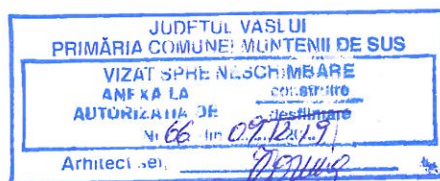 JUDEȚUL VASLUI
PRIMĂRIA COMUNEI MUNTENII DE SUS
VIZAT SPRE NESCHIMBARE
ANEXA LA construire
AUTORIZAȚIA DE desființare
Nr. 66 din 09.12.19
Arhitect șef,